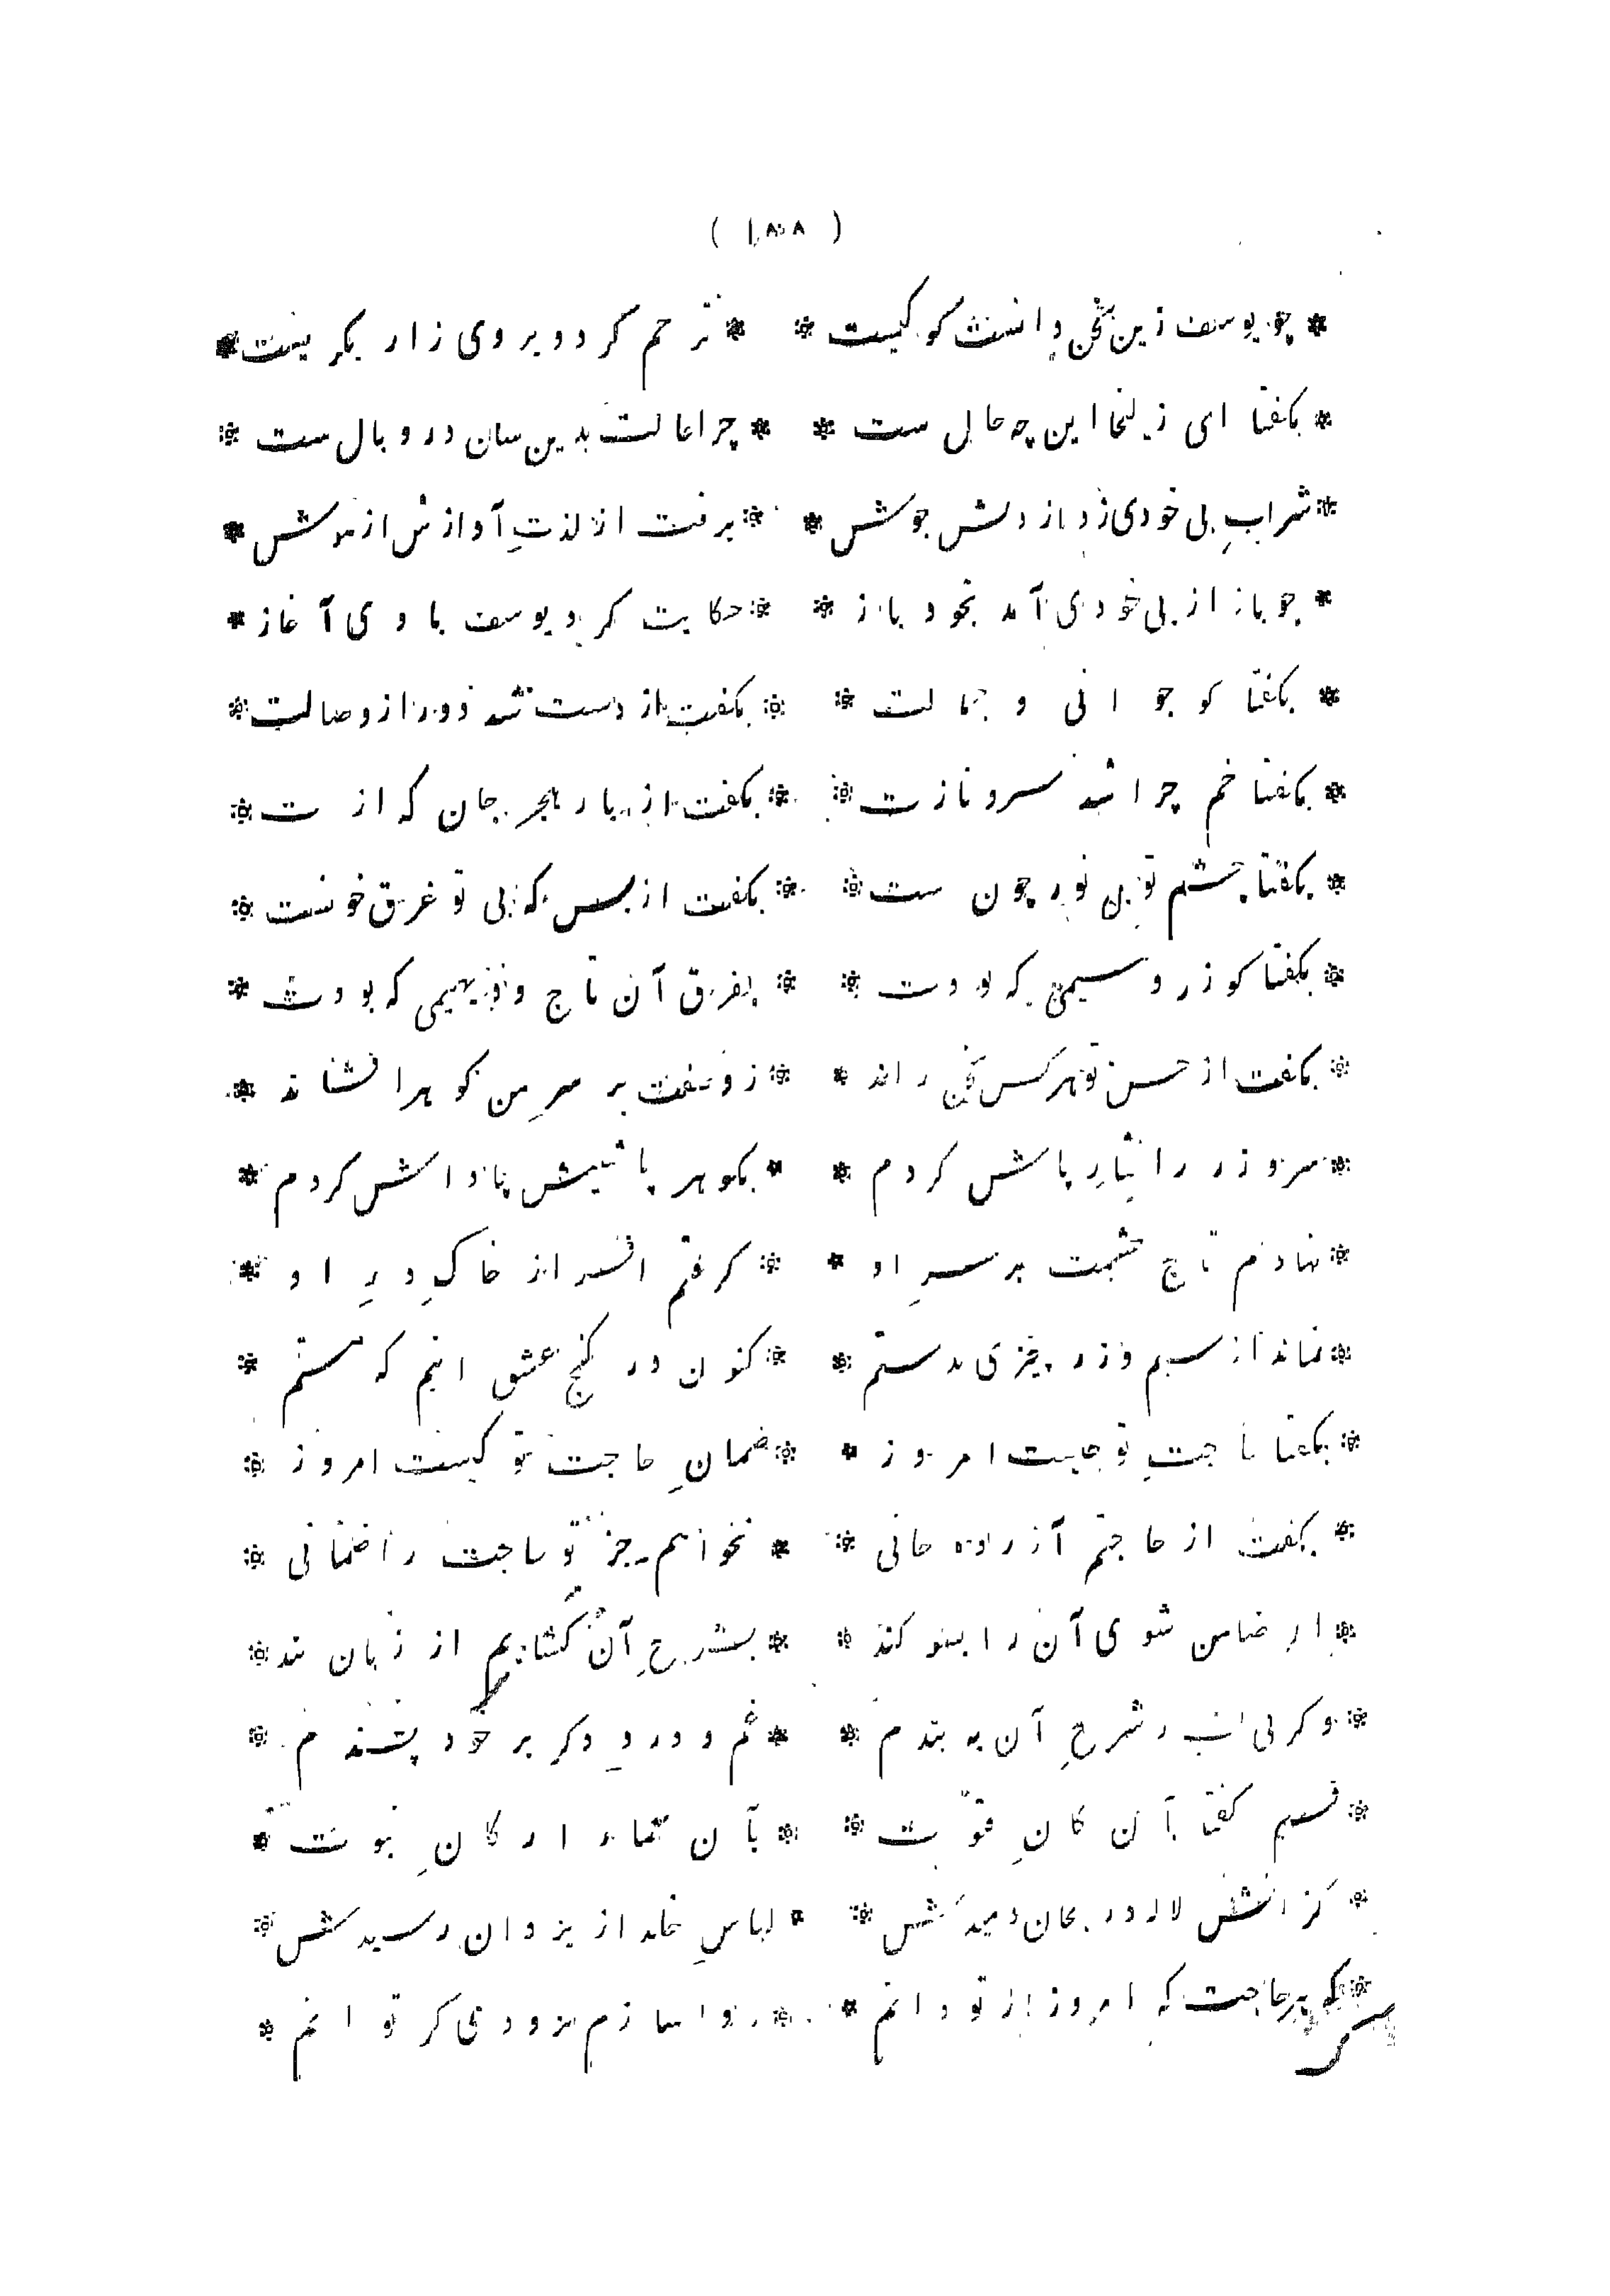 ( ۱۸۸ )
* چو یوسف زین سخن دانست کو کیست * * ترحم کرد و بر وی زار بگریست *
* بگفتا ای زلیخا این چه حال ست * * چرا حالت بدین سان در وبال ست *
* شرابِ بی خودی زد از دلش جوش * * برفت از لذتِ آوازش از هوش *
* چو باز از بی خودی آمد بخود باز * * حکایت کرد یوسف با وی آغاز *
* بگفتا کو جوانی و جمالت * * بگفت از دست شد دور از وصالت *
* بگفتا خم چرا شد سرو نازت * * بگفت از بار هجر جان گدازت *
* بگفتا چشم تو بی نور چون ست * * بگفت از بس که بی تو غرق خونست *
* بگفتا کو زر و سیمی که بودت * * بفرق آن تاج و دیهیمی که بودت *
* بگفت از حسن تو هر کس سخن راند * * ز وصفت بر سرِ من گوهر افشاند *
* سر و زر را نثارِ پاش کردم * * بگوهر پاشیش پاداش کردم *
* نهادم تاج حشمت بر سرِ او * * گرفتم افسر از خاکِ درِ او *
* نماند از سیم و زر چیزی بدستم * * کنون در گنج عشق اینم که هستم *
* بگفتا حاجتِ تو چیست امروز * * ضمانِ حاجت تو کیست امروز *
* بگفت از حاجتم آزرده جانی * * نخواهم جز تو حاجت را ضمانی *
* ار ضامن شوی آن را بسوگند * * بشرحِ آن گشایم از زبان بند *
* وگر نی لب ز شرحِ آن به بندم * * غم و دردِ دگر بر خود پسندم *
* قسم گفتا بآن کانِ فتوّت * * بآن معمار ارکانِ نبوت *
* کز آتش لاله و ریحان دمیدش * * لباسِ خلد از یزدان رسیدش *
* که هر حاجت که امروز از تو دانم * * روا سازم بزودی گر توانم *